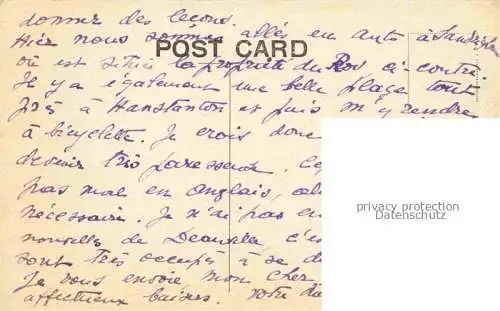 donner des leçons.
Hier nous sommes allés en auto à Sandringham
POST CARD
où est située la propriété du Roi ci-contre.
Il y a également une belle plage tout
près à Hunstanton et puis m'y rendre
à bicyclette. Je crois donc
devenir très paresseuse.
pas mal en anglais,
nécessaire. Je n'ai pas en
privacy protection
Datenschutz
nouvelles de Deauville, c'es
sont très occupés à se d
Je vous envoie, mon cher
affectueux baisers. Votre